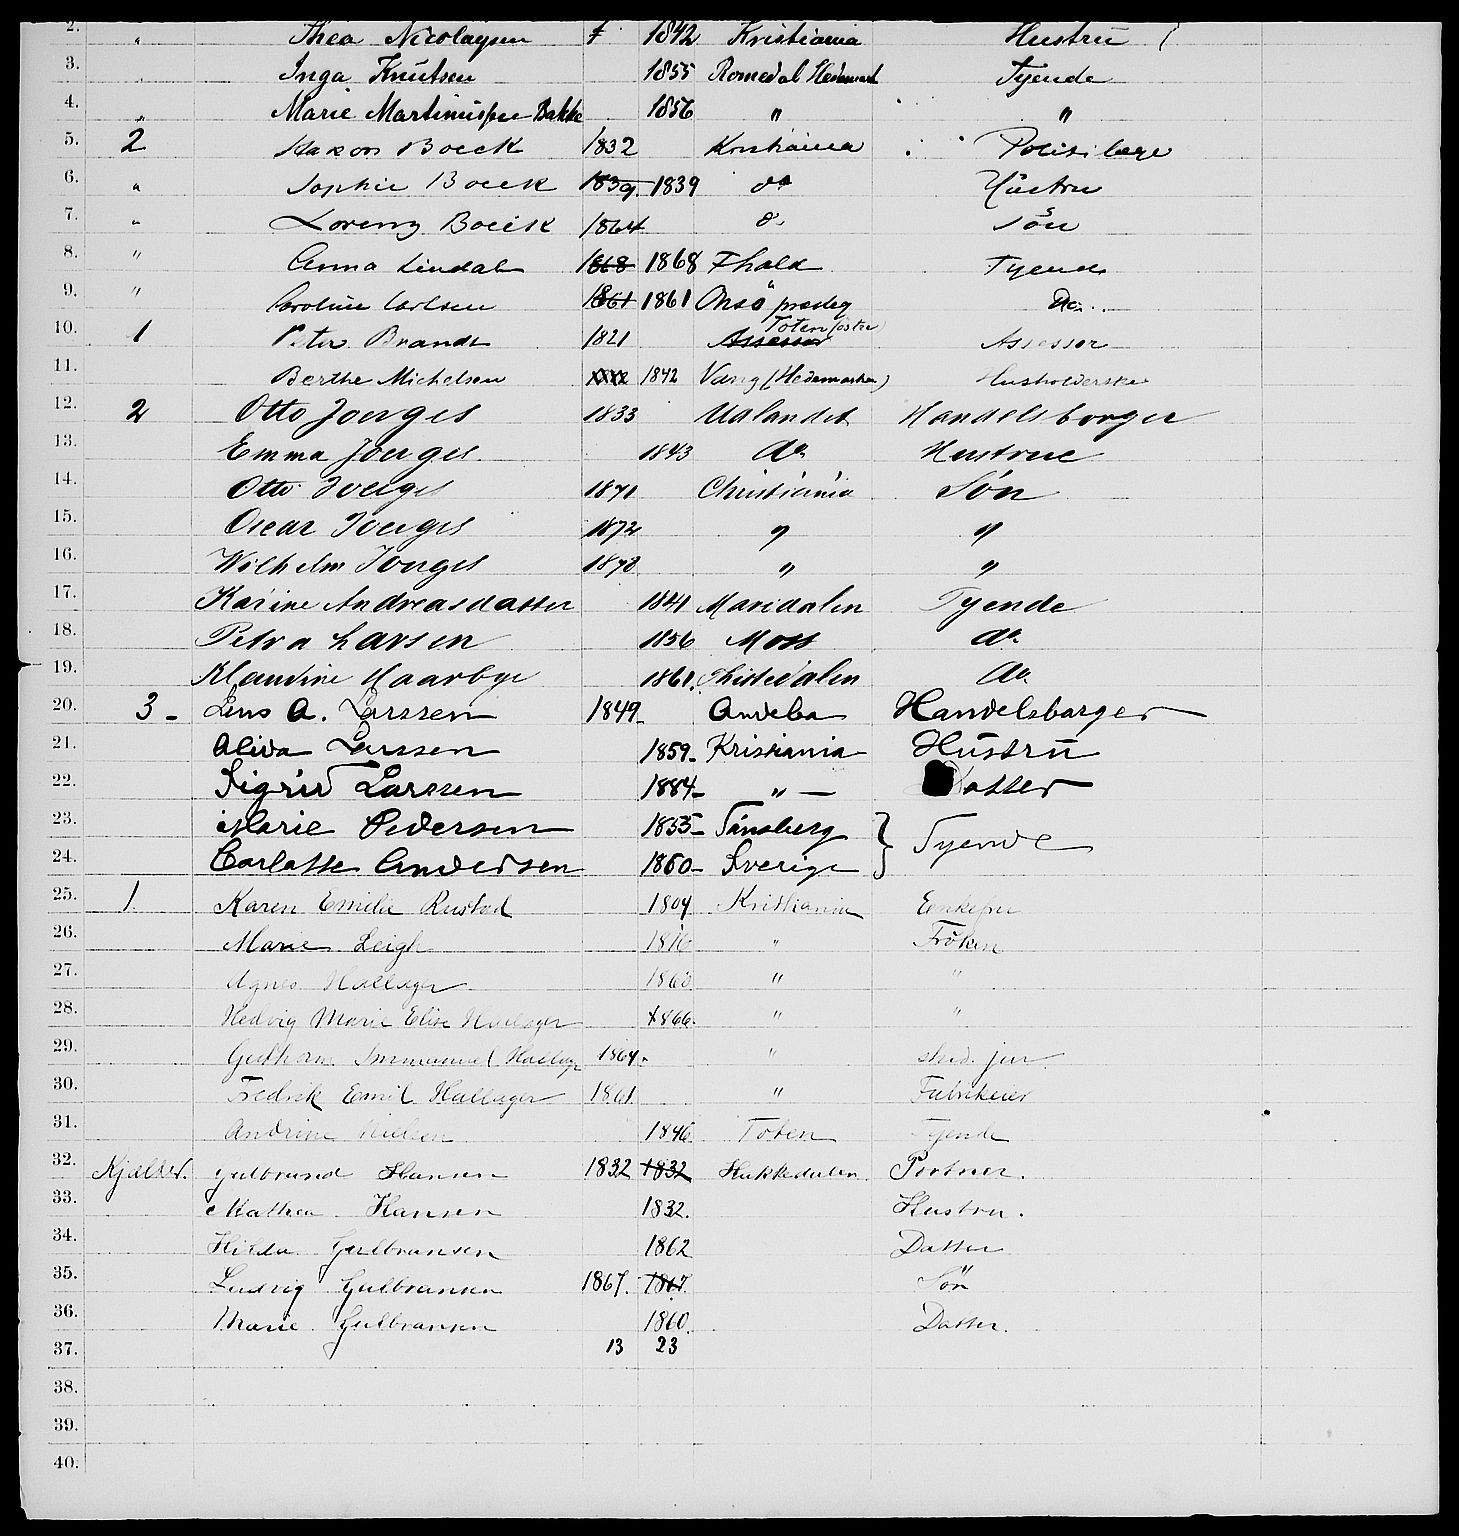 2. " Thea Nicolaysen f 1842 Kristiania Hustrü
3. " Inga Knütsen 1855 Romedal Hedemark Tyende
4. " Marie Bakke 1856 " "
5. 2 Hakon Boeck 1832 Kristiania
6. " Sophie Boeck 1839 1839 do Hüstru
7. " Lorenz Boeck 1864 do Sön
8. " Anna Lindal 1868 1868 Fhald Tyende
9. " Caroline Carlsen 1861 1861 Onsö Do.
10. 1 Peter Brandt 1821 Assessor Toten (östre) Assessor
11. Berthe Michelsen 1842 Vang (Hedemarken) Husholderske
12. 2 Otto Joerges 1833 Udlandet Handelsborger
13. Emma Joerges 1843 do Hustrue
14. Otto Joerges 1871 Christiania Søn
15. Oscar Joerges 1872 " "
16. Wilhelm Joerges 1873 " "
17. Karine Andreasdatter 1841 Maridalen Tyende
18. Petra Larsen 1856 Moss do
19. Klaudine Haarbye 1861. Tistedalen do
20. 3 - Lens A. Larssen 1849 - Handelsborger
21. Alida Larssen 1859 - Kristiania Hüstrü
22. Sigrid Larssen 1884 - " - Datter
23. Marie Pedersen 1855 - Tönsberg } Tyende
24. Carlotte Andersen 1860 - Sverige
25. 1 Karen Emilie Rustad 1809 Kristiania Enkefru
26. Marie Leigh 1816 " Fröken
27. Agnes Hallager 1863 " "
28. Hedvig Marie Elise Hallager 1866. " "
29. Guthorm Immanuel Hallager 1864. " stud. jur
30. Fredrik Emil Hallager 1861 " Fabrikeier
31. Andrine Nielsen 1846 Toten Tyende
32. Kjælder. Gulbrand Hansen 1832 1832 Hakkedalen Portner.
33. Mathea Hansen 1832. Hustru.
34. Hilda Gulbransen 1862 Datter
35. Ludvig Gulbransen 1867. 1867. Sön
36. Marie Gulbransen 1860. Datter.
37. 13 23
38.
39.
40.